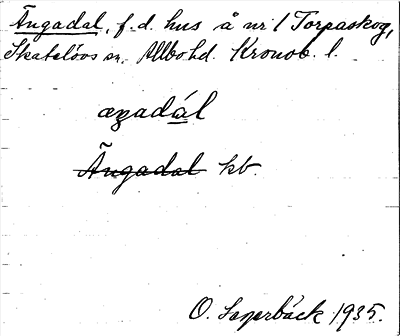 Ängadal, f.d. hus å nr 1 Torpaskog,
Skatelövs sn. Allbo hd. Kronob. l.
æŋadál
Ängadal kb.
O. Sagerbäck 1935.